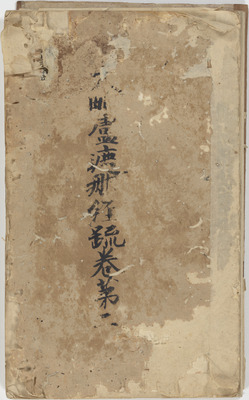 毗盧遮那經疏卷第二